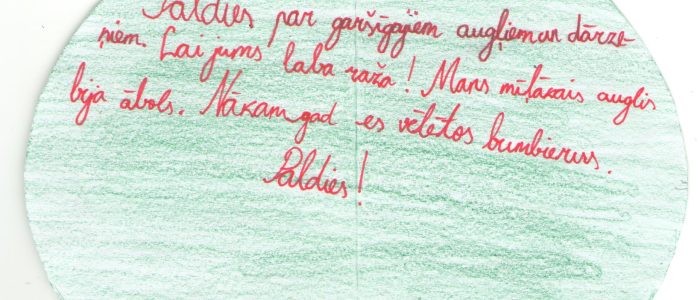 Paldies par garšīgajiem augļiem un dārze-
ņiem. Lai jums laba raža! Mans mīļākais auglis
bija ābols. Nākamgad es vēlētos bumbierus.
Paldies!